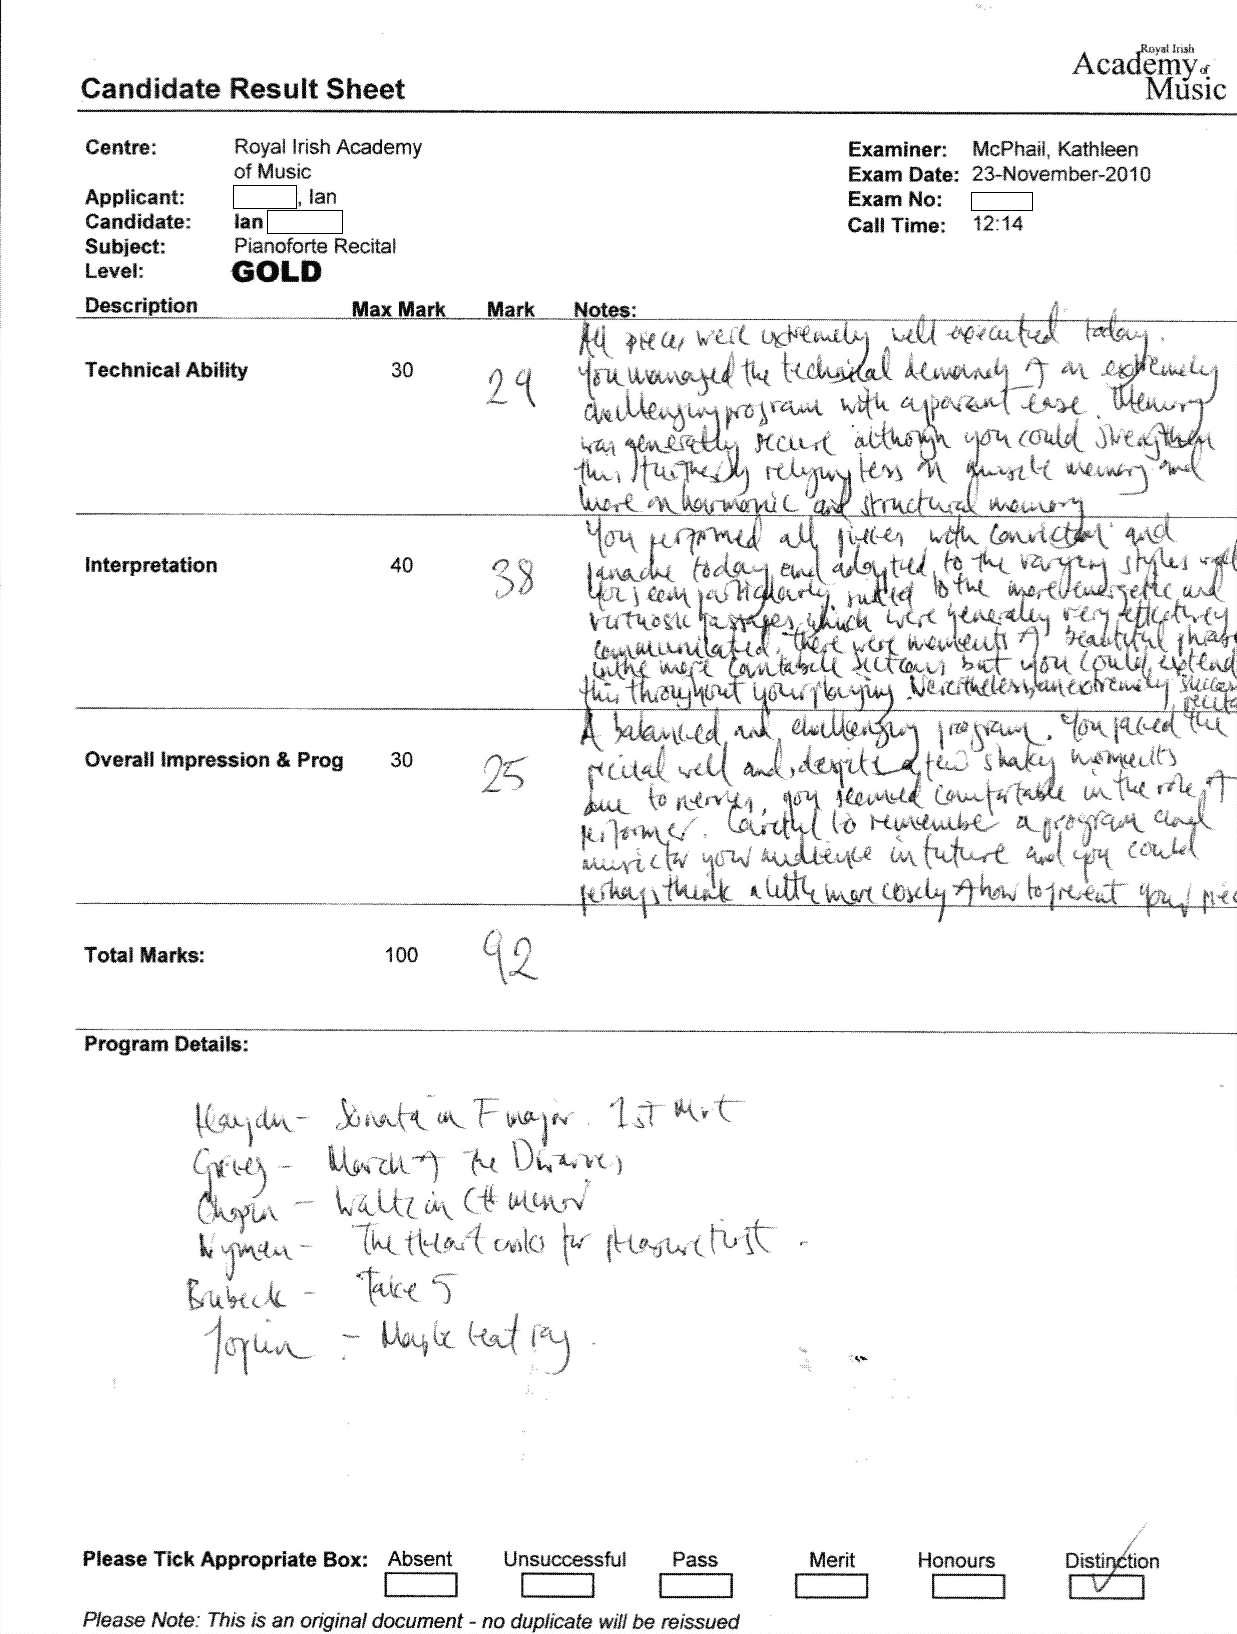 Royal Irish
Academy of
Music
Candidate Result Sheet
Centre: Royal Irish Academy
of Music
Applicant: , Ian
Candidate: Ian
Subject: Pianoforte Recital
Level: GOLD
Examiner: McPhail, Kathleen
Exam Date: 23-November-2010
Exam No:
Call Time: 12:14
Description Max Mark Mark Notes:
Technical Ability 30 29
All pieces were extremely well executed today.
You managed the technical demands of an extremely
challenging program with apparant ease. Memory
was generally secure although you could strengthen
this further by relying less on muscle memory and
more on harmonic and structural memory
Interpretation 40 38
You performed all pieces with conviction and
panache today and adapted to the varying styles well
You seem particularly suited to the more energetic and
virtuosic passages which were generally very effectively
communicated. There were moments of beautiful phras
in the more cantabile sections but you could extend
this throughout your playing. Nevertheless, an extremely succes
recita
Overall Impression & Prog 30 25
A balanced and challenging program. You paced the
recital well and, despite a few shaky moments
due to nerves, you seemed comfortable in the role of
performer. Careful to remember a program and
music for your audience in future and you could
perhaps think a little more closely of how to present your piec
Total Marks: 100 92
Program Details:
Haydn - Sonata in F major. 1st Mvt
Grieg - March of the Dwarves
Chopin - Waltz in C# minor
Nyman - The Heart asks for pleasure first.
Brubeck - Take 5
Joplin - Maple leaf rag.
Please Tick Appropriate Box: Absent Unsuccessful Pass Merit Honours Distinction
Please Note: This is an original document - no duplicate will be reissued